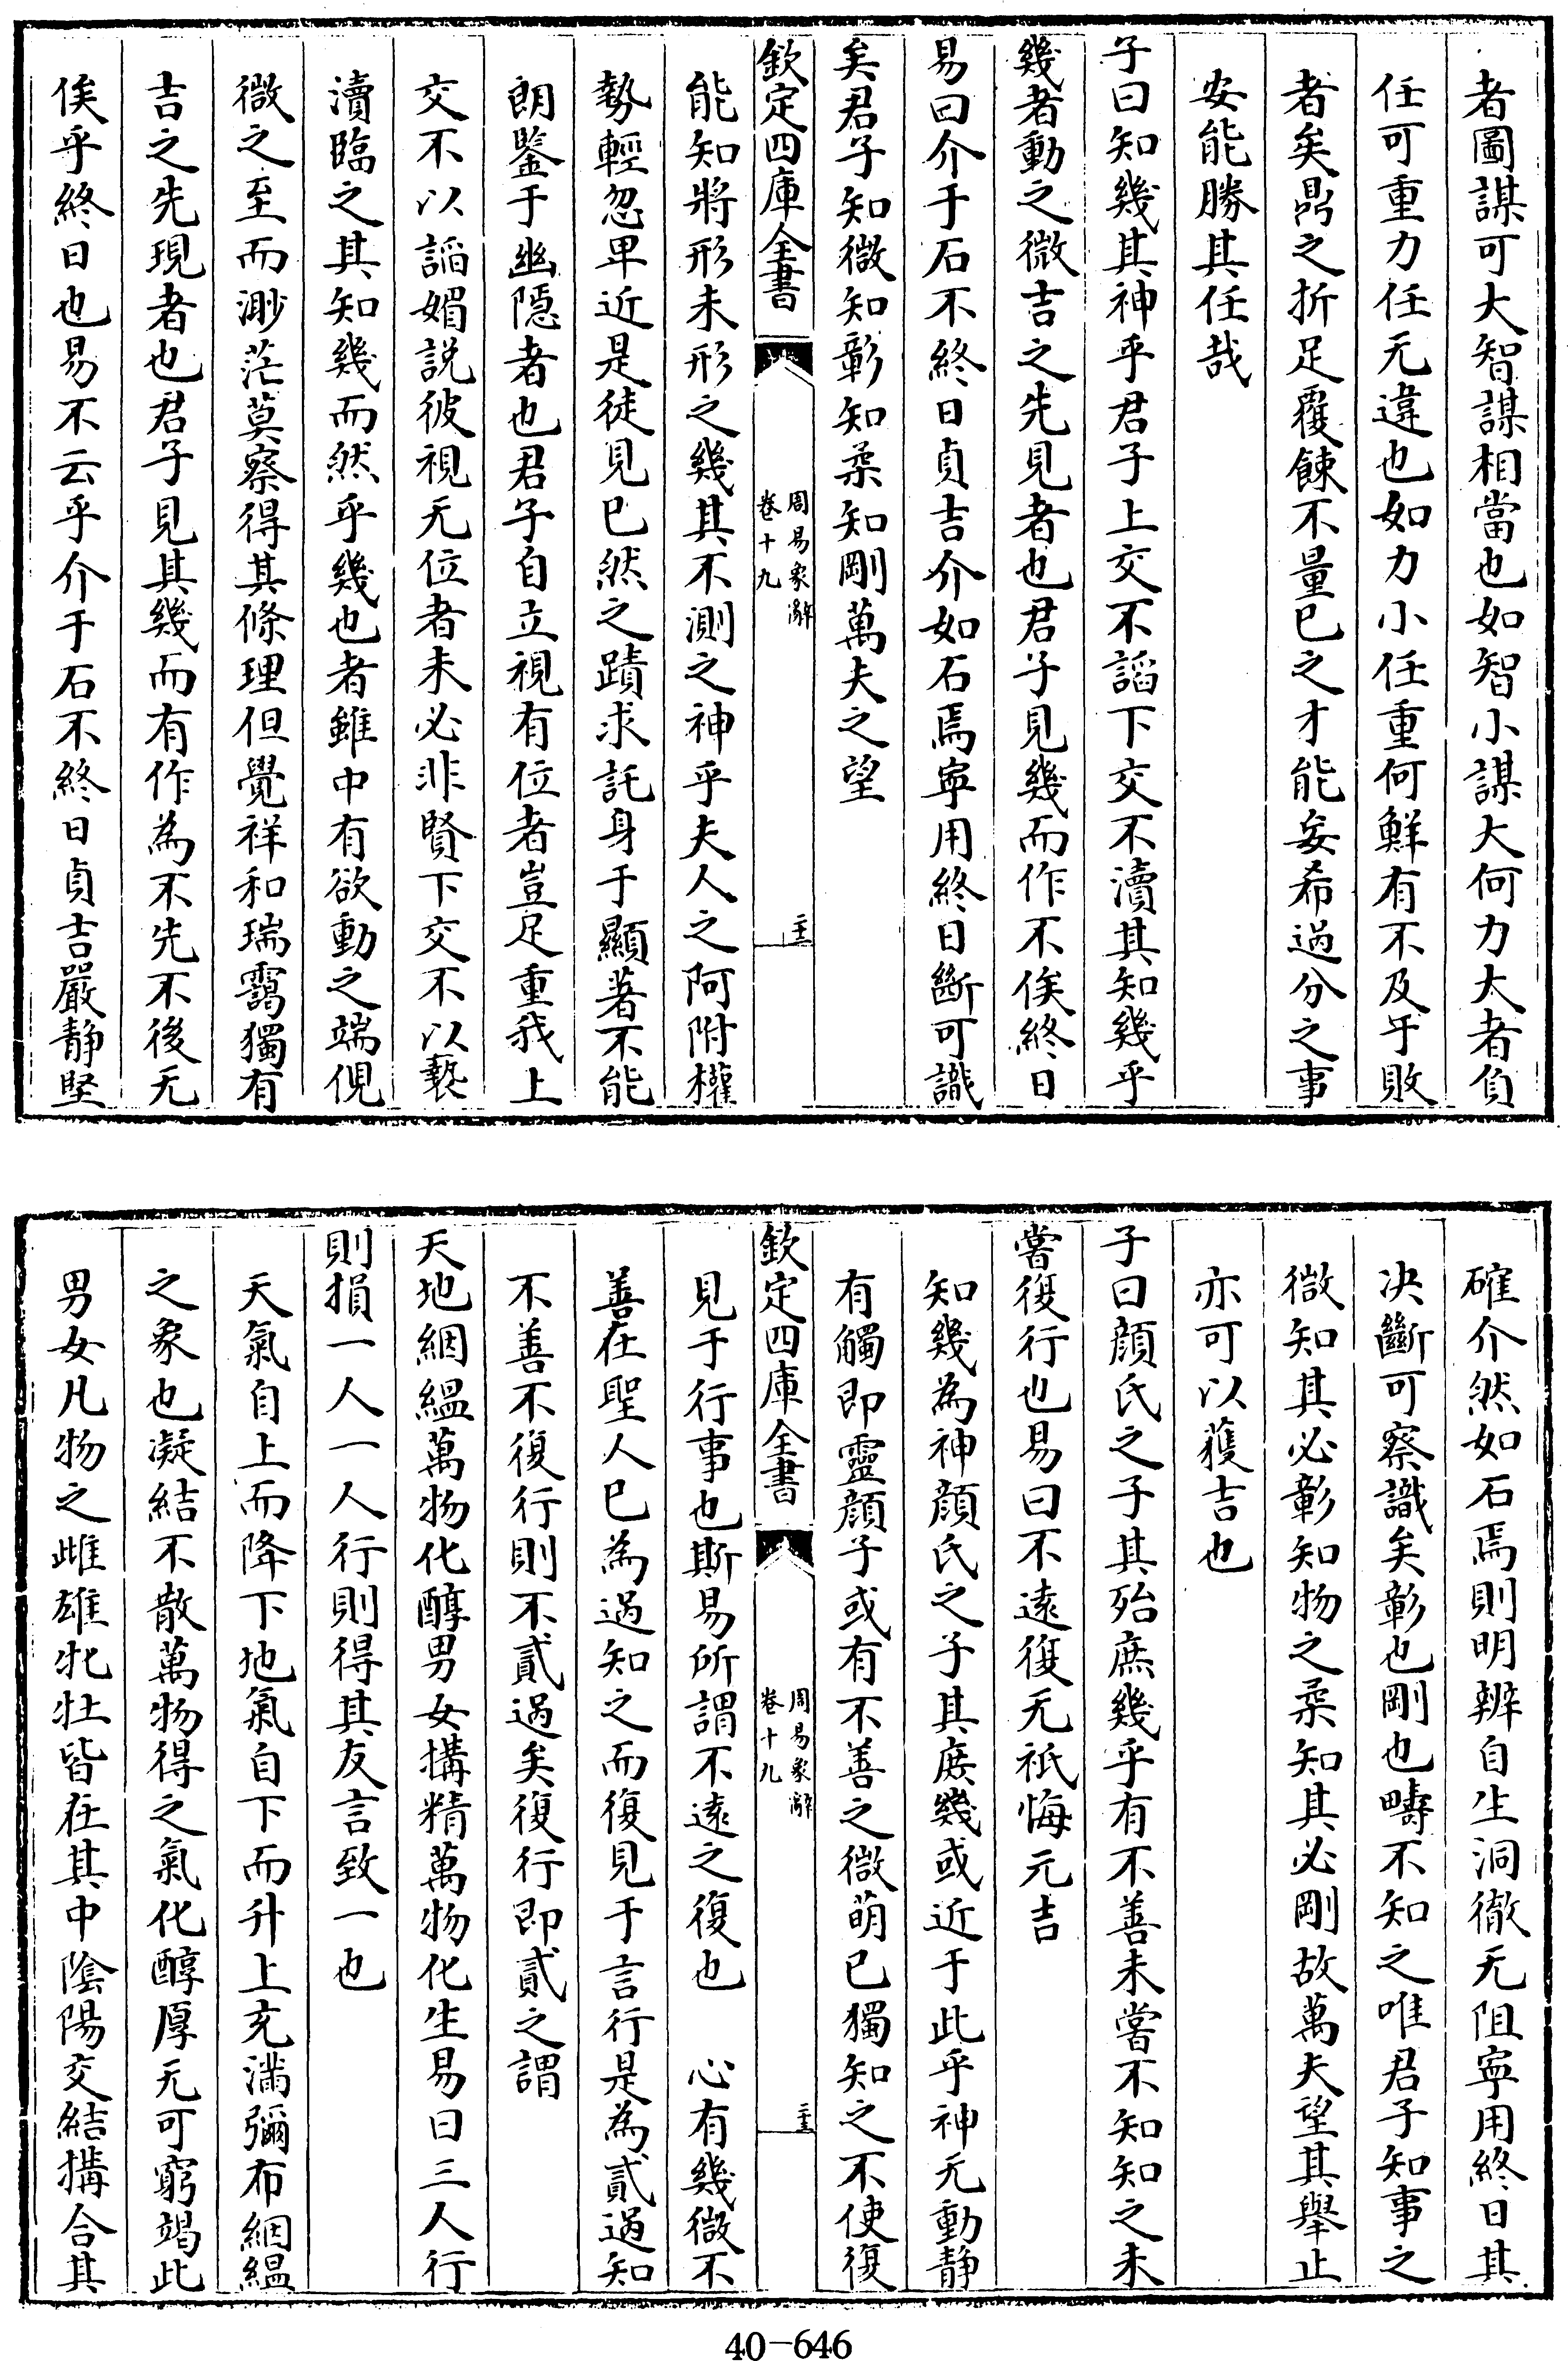 者圖謀可大智謀相當也如智小謀大何力大者負
任可重力任无違也如力小任重何鮮有不及于敗
者矣鼎之折足覆餗不量已之才能妄希過分之事
安能勝其任哉
子曰知幾其神乎君子上交不謟下交不瀆其知幾乎
幾者動之微吉之先見者也君子見幾而作不俟終日
易曰介于石不終日貞吉介如石焉寧用終日斷可識
矣君子知微知彰知柔知剛萬夫之望
欽定四庫全書
周易象辭
卷十九
二十二
能知將形未形之幾其不測之神乎夫人之阿附權
勢輕忽卑近是徒見已然之蹟求託身于顯著不能
朗鑒于幽隱者也君子自立視有位者豈足重我上
交不以謟媚説彼視无位者未必非賢下交不以褻
瀆臨之其知幾而然乎幾也者雖中有欲動之端倪
微之至而渺茫莫察得其條理但覺祥和瑞靄獨有
吉之先現者也君子見其幾而有作為不先不後无
俟乎終日也易不云乎介于石不終日貞吉嚴静堅
確介然如石焉則明辨自生洞徹无阻寧用終日其
决斷可察識矣彰也剛也疇不知之唯君子知事之
微知其必彰知物之柔知其必剛故萬夫望其舉止
亦可以獲吉也
子曰顔氏之子其殆庶幾乎有不善未嘗不知知之未
嘗復行也易曰不遠復无祇悔元吉
知幾為神顔氏之子其庶幾或近于此乎神无動静
有觸即靈顔子或有不善之微萌已獨知之不使復
欽定四庫全書
周易象辭
卷十九
二十三
見于行事也斯易所謂不遠之復也　心有幾微不
善在聖人已為過知之而復見于言行是為貳過知
不善不復行則不貳過矣復行即貳之謂
天地絪縕萬物化醇男女搆精萬物化生易曰三人行
則損一人一人行則得其友言致一也
天氣自上而降下地氣自下而升上充滿彌布絪縕
之象也凝結不散萬物得之氣化醇厚无可窮竭此
男女凡物之雌雄牝牡皆在其中陰陽交結搆合其
40-646